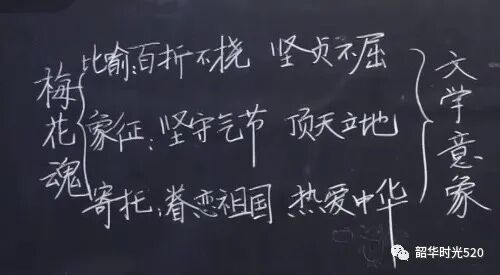 梅花魂
比喻:百折不挠 坚贞不屈
象征:坚守气节 顶天立地
寄托:眷恋祖国 热爱中华
文学意象
韶华时光520